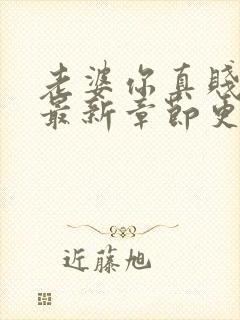 老婆你真賤
最新章節更
近藤旭